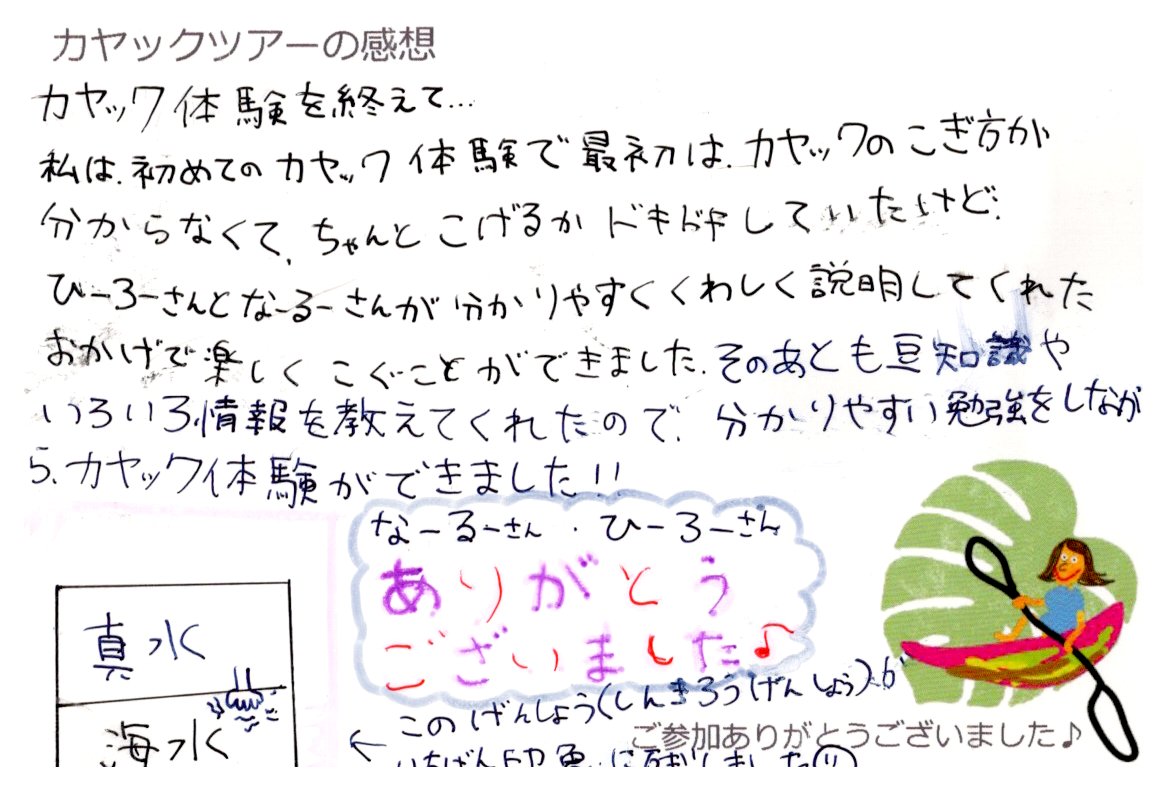 カヤックツアーの感想
カヤック体験を終えて...
私は、初めてのカヤック体験で最初は、カヤックのこぎ方が
分からなくて、ちゃんとこげるかドキドキしていたけど、
ひーろーさんとなーるーさんが分かりやすくくわしく説明してくれた
おかげで楽しくこぐことができました。そのあとも豆知識や
いろいろ情報を教えてくれたので、分かりやすい勉強をしなが
ら、カヤック体験ができました!!
なーるーさん・ひーろーさん
ありがとう
ございました♪
真水
海水
このげんしょう(しんきろうげんしょう)が
ご参加ありがとうございました♪